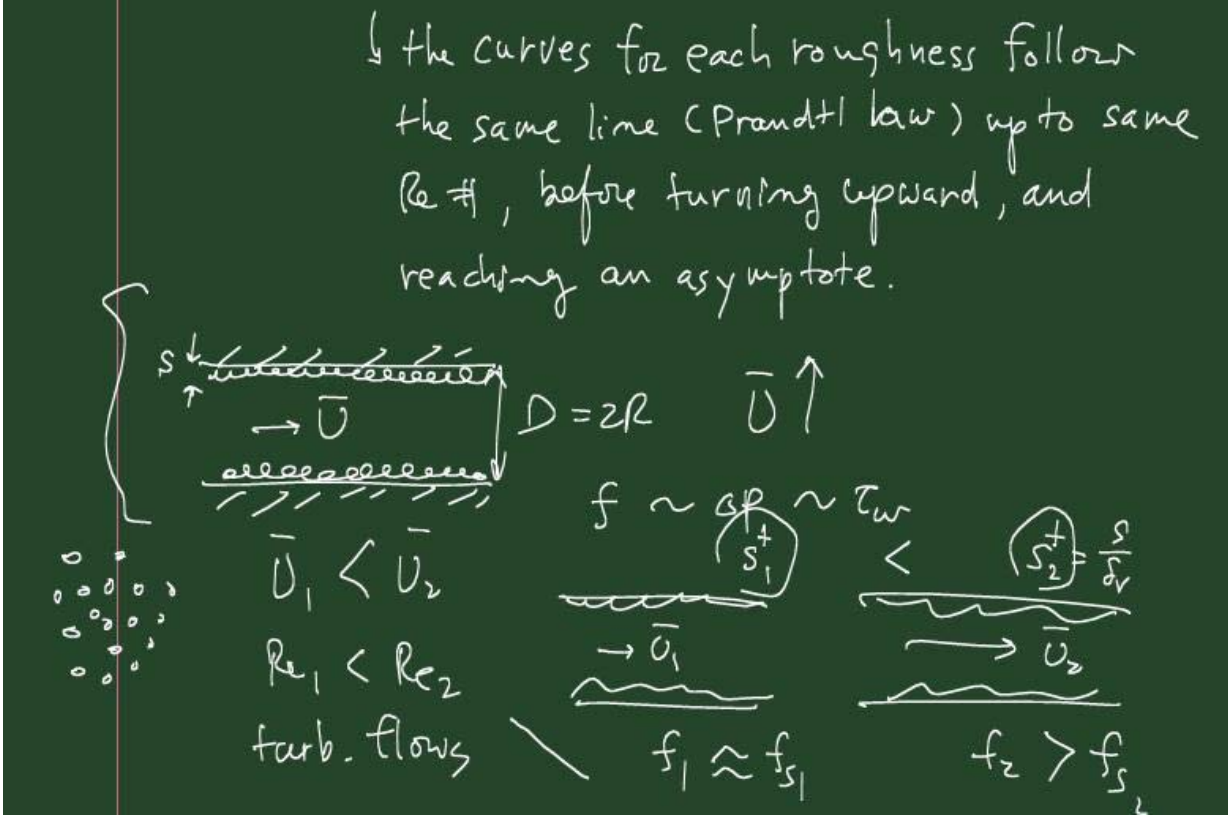 ↳ the curves for each roughness follow
the same line (Prandtl law) up to same
Re #, before turning upward, and
reaching an asymptote.
s
→ Ū
D = 2R
Ū ↑
f ~ ΔP ~ τw
Ū₁ < Ū₂
s₁⁺ < s₂⁺ = s/δᵥ
Re₁ < Re₂
→ Ū₁
→ Ū₂
turb. flows
f₁ ≈ fₛ₁
f₂ > fₛ₂